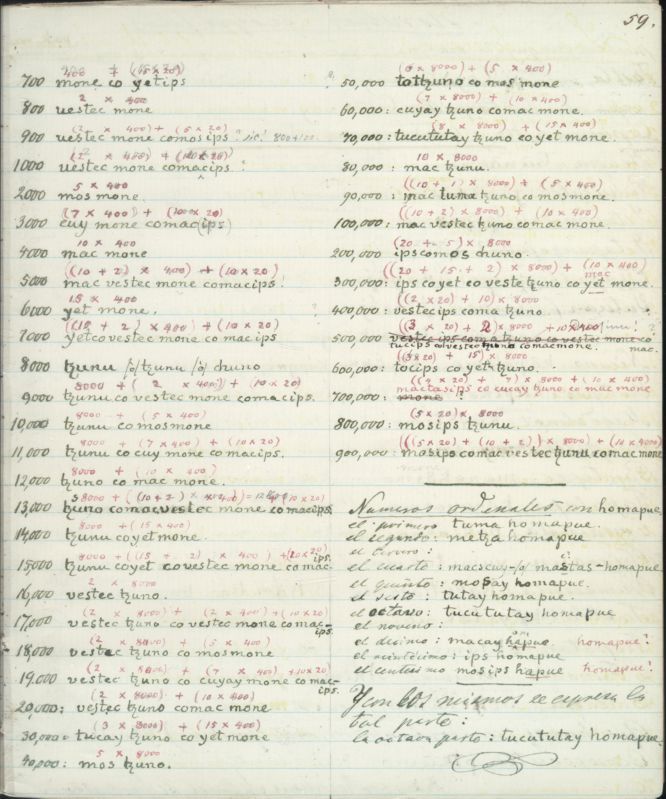 59.
400 + (15 x 20)
700 mone co yetips
2 x 400
800 vestec mone
(2 x 400) + (5 x 20)
900 vestec mone comosips
(2 x 400) + (10 x 20)
1000 vestec mone comacips
5 x 400
2000 mos mone.
(7 x 400) + (10 x 20)
3000 cuy mone comac(ips)
10 x 400
4000 mac mone
((10 + 2) x 400) + (10 x 20)
5000 mac vestec mone comacips!
15 x 400
6000 yet mone.
((15 + 2) x 400) + (10 x 20)
7000 yetcovestec mone co macips
8000 tzunu /ó/ tzunu /ó/ chuno
8000 + (2 x 400) + (10 x 20)
9000 tzunu co vestec mone comacips.
8000 + (5 x 400)
10,000 tzunu comosmone
8000 + (7 x 400) + (10 x 20)
11,000 tzunu co cuy mone co macips.
8000 + (10 x 400)
12,000 tzuno co mac mone.
8000 + ((10+2) x 400) + (10 x 20)
13,000 tzuno comacvestec mone comacips
8000 + (15 x 400)
14,000 tzunu coyet mone.
8000 + ((15 + 2) x 400) + (10 x 20)
15000 tzunu coyet covestec mone co mac-
ips.
2 x 8000
16,000 vestec tzuno.
(2 x 8000) + (2 x 400) + (10 x 20)
17,000 vestec tzuno co vestec mone comac-
ips.
(2 x 8000) + (5 x 400)
18,000 vestec tzuno co mosmone
(2 x 8000) + (7 x 400) + (10 x 20)
19,000 vestec tzuno co cuyay mone co mac-
ips.
(2 x 8000) + (10 x 400)
20,000; vestec tzuno comac mone
(3 x 8000) + (15 x 400)
30,000 = tucay tzuno co yet mone
5 x 8000
40,000: mos tzuno.
(6 x 8000) + (5 x 400)
50,000 totzuno co mos mone
(7 x 8000) + (10 x 400)
60,000: cuyay tzuno comac mone.
(8 x 8000) + (15 x 400)
70,000: tucututay tzuno co yet mone.
10 x 8000
80,000: mac tzunu.
((10 + 1) x 8000) + (5 x 400)
90,000: mac tuma tzuno co mosmone.
((10 + 2) x 8000) + (10 x 400)
100,000: mac vestec tzuno comac mone.
(20 + 5) x 8000
200,000 ipscomos chuno.
((20 + 15 + 2) x 8000) + (10 x 400)
mac
300,000: ips co yet co veste tzuno co yet mone.
((2 x 20) + 10) x 8000
400,000: vestecips coma tzuno.
((3 x 20) + 2) x 8000 + 10 x 400
500,000 vestec ips coma tzuno co vestec mone co mac.
tucips covestec tzuno comacmone.
((3 x 20) + 15) x 8000
600,000: tocips co yet tzuno.
((4 x 20) + 7) x 8000 + (10 x 400)
mactasips co cucay tzuno co mac mone
700,000: mone
(5 x 20) x 8000
800,000: mosips tzunu.
(((5 x 20) + (10 + 2)) x 8000) + (10 x 400)
900,000: mosips comac vestec tzunu comac mone
Numeros ordinales con homapue.
el primero tuma homapue.
el segundo: metza homapue.
el tercero:
el cuarto: macscuy-/ó/ mactas-homapue
el quinto: mosay homapue.
el sesto: tutay homapue.
el octavo: tucututay homapue
el noveno:
el decimo: macay hapue homapue?
el veintécimo: ips homapue
el centésimo mosips hapue homapue?
Y con los mismos se espresa la
tal parte:
la octava parte: tucututay homapue.